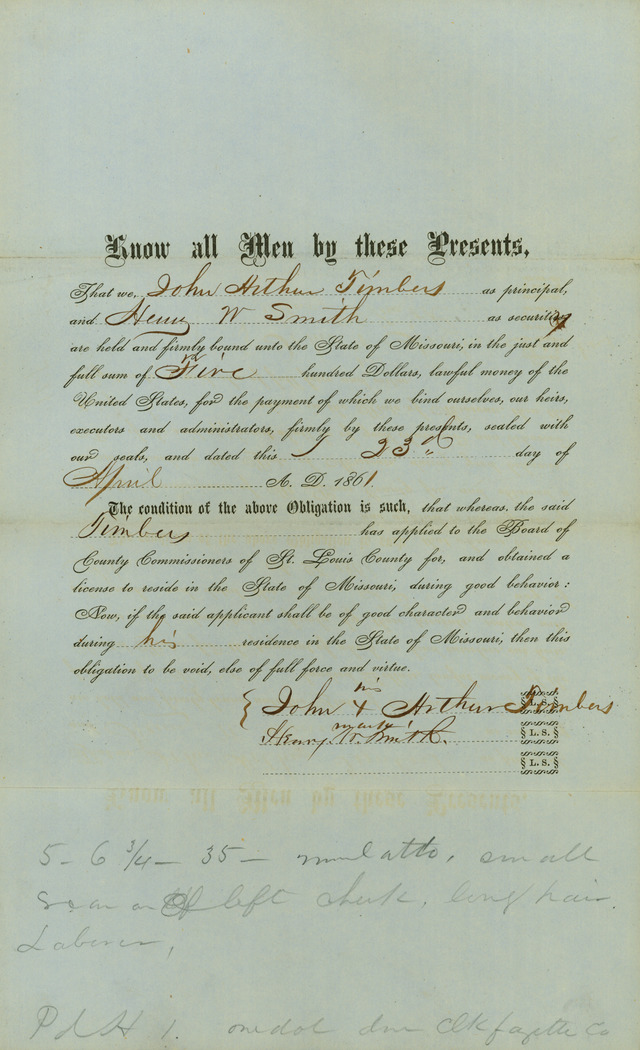 Know all Men by these Presents,
That we, John Arthur Timbers as principal,
and Henry W Smith as security
are held and firmly bound unto the State of Missouri, in the just and
full sum of Five hundred Dollars, lawful money of the
United States, for the payment of which we bind ourselves, our heirs,
executors and administrators, firmly by these presents, sealed with
our seals, and dated this 23d day of
April A. D. 1861.
The condition of the above Obligation is such, that whereas, the said
Timbers has applied to the Board of
County Commissioners of St. Louis County for, and obtained a
license to reside in the State of Missouri, during good behavior:
Now, if the said applicant shall be of good character and behavior
during his residence in the State of Missouri, then this
obligation to be void, else of full force and virtue.
his
John X Arthur Timbers L. S.
mark
Henry W. Smith. L. S.
L. S.
5-6 3/4 - 35 - mulatto, small
scar on left cheek, long hair.
Laborer,
Pd 1. one dol due Clk Co